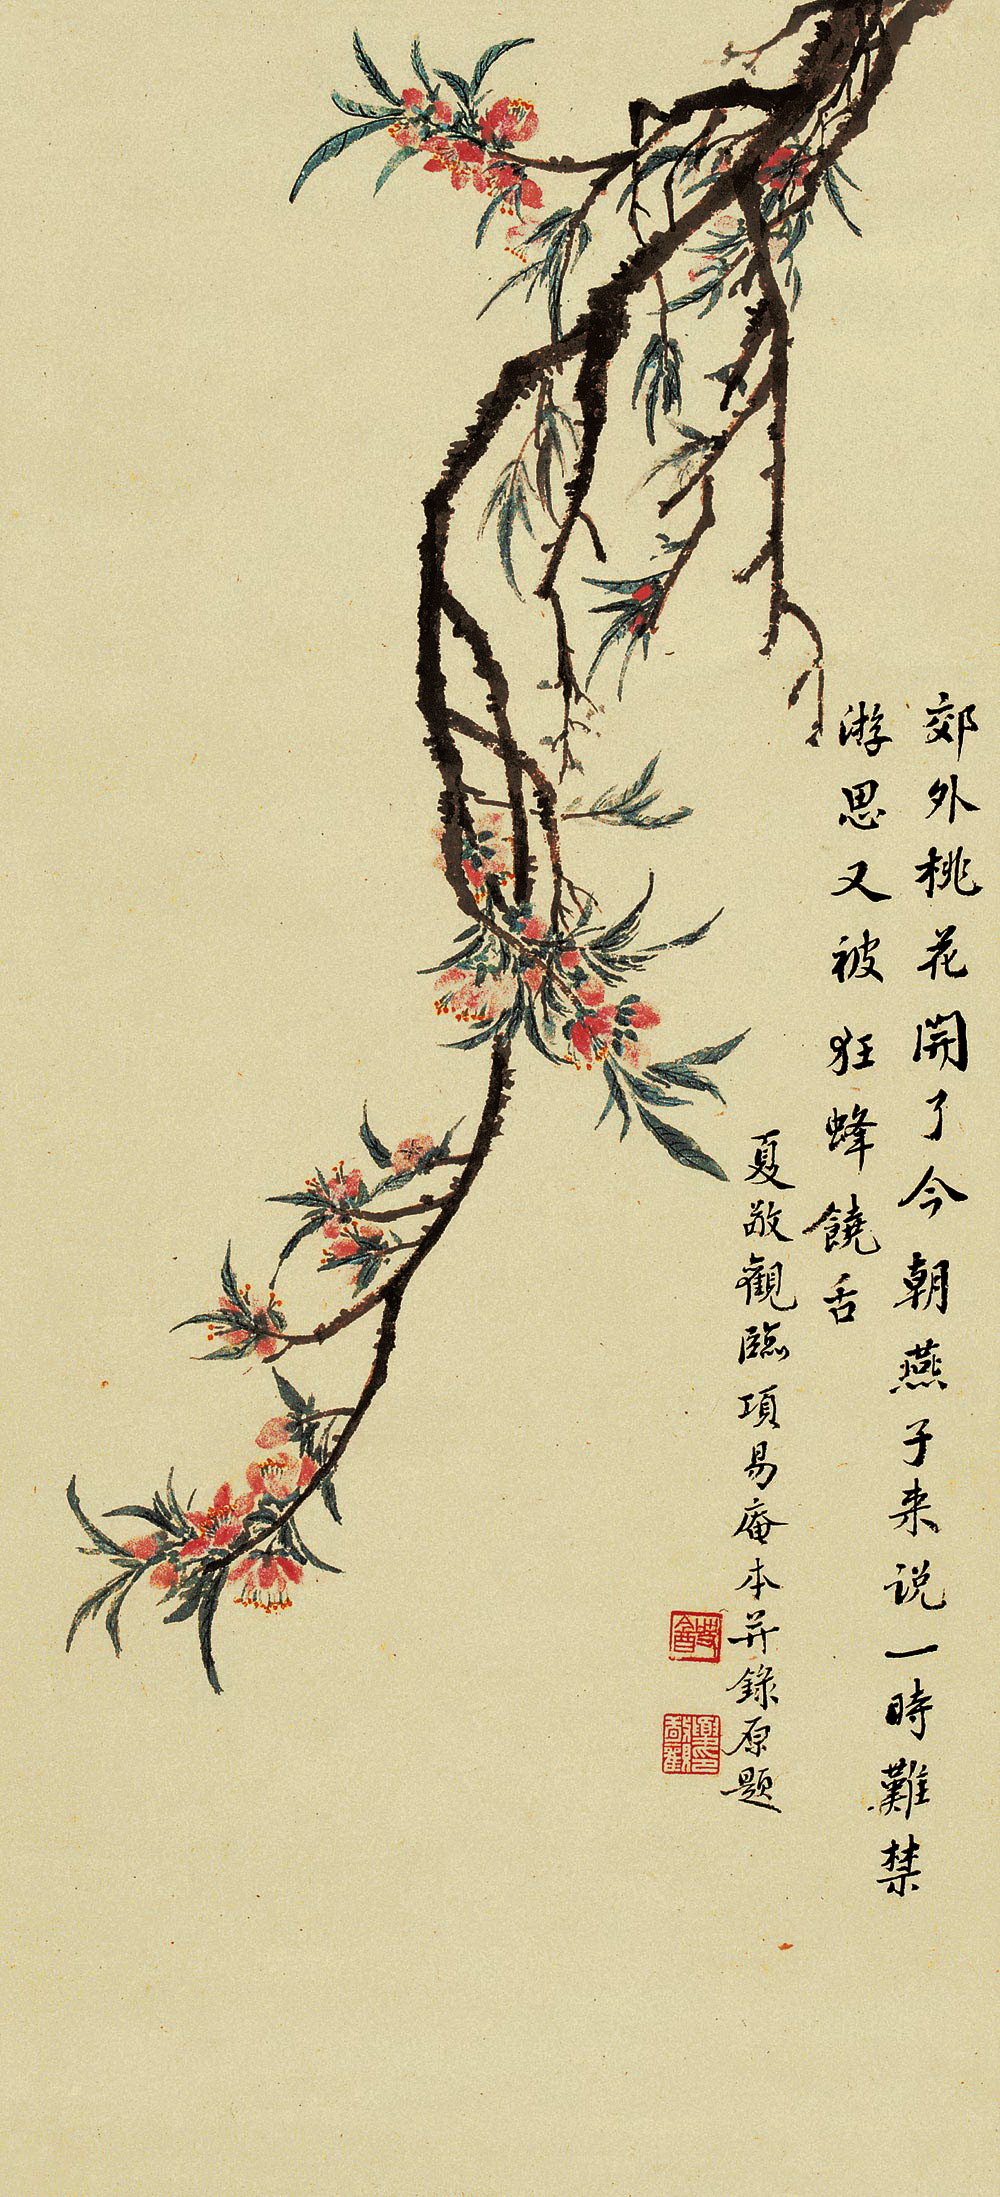 郊外桃花開了今朝燕子来说一時難禁
游思又被狂蜂饒舌
夏敬觀臨項易庵本并錄原題